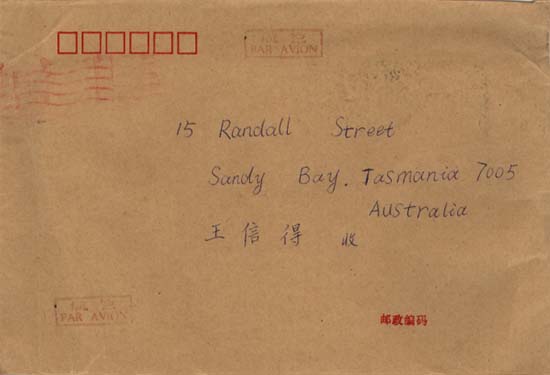 PAR AVION
15 Randall Street
Sandy Bay. Tasmania 7005
Australia
王信得 收
PAR AVION
邮政编码